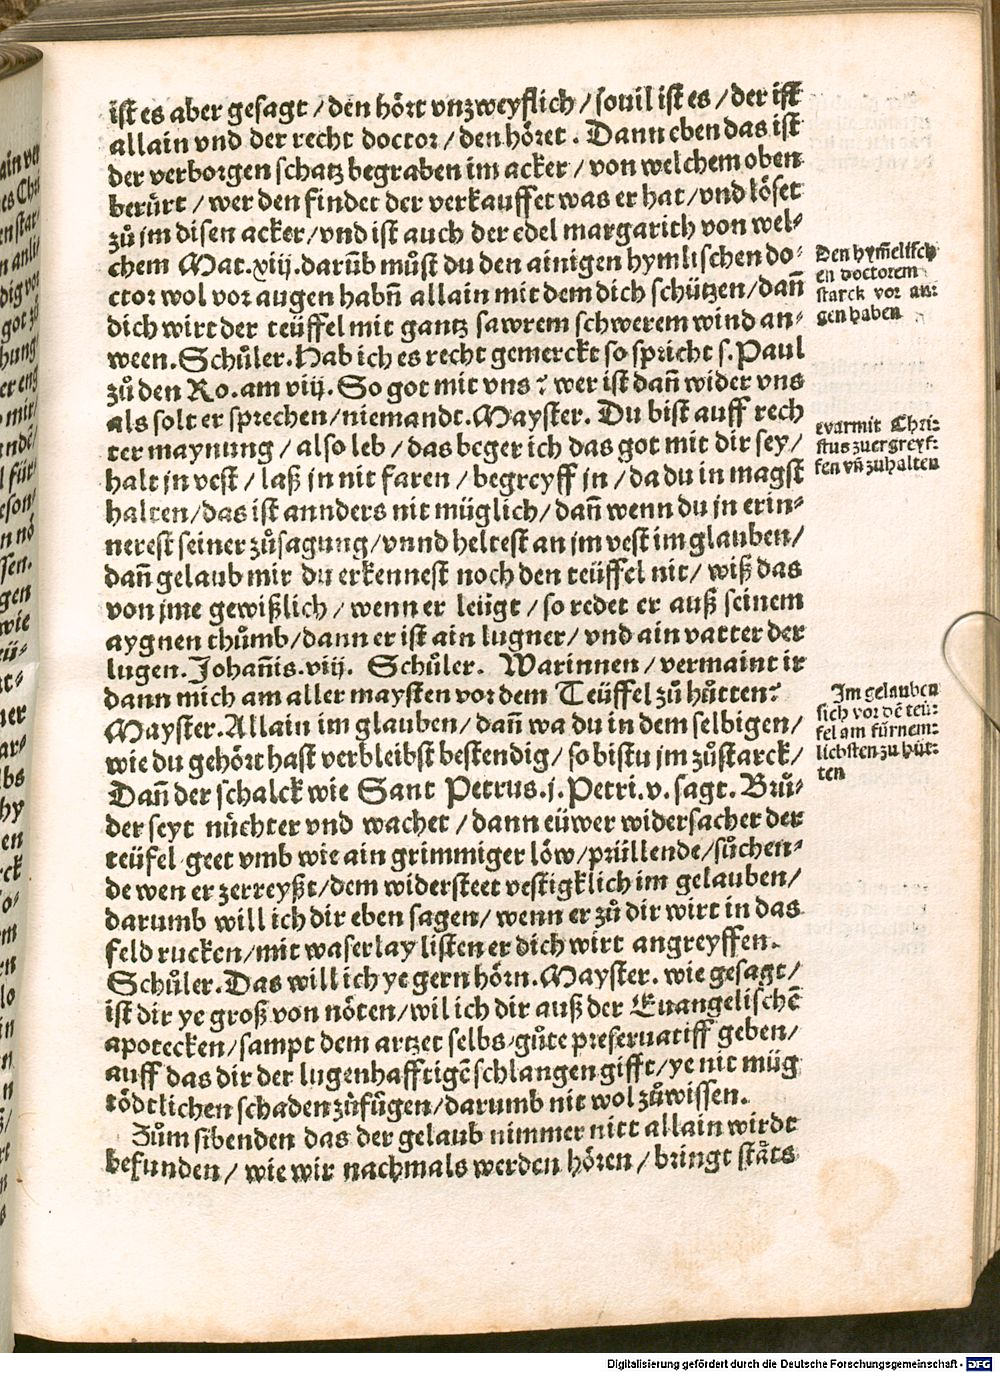 ist es aber gesagt / den hört vnzweyflich / souil ist es / der ist
allain vnd der recht doctor / den höret . Dann eben das ist
der verborgen schatz begraben im acker / von welchem oben
berürt / wer den findet der verkauffet was er hat / vnd löset
zů jm disen acker / vnd ist auch der edel margarith von wel⸗
chem Mat.xiij. darũb můst du den ainigen hymlischen do⸗
ctor wol vor augen habñ allain mit dem dich schützen / dañ
dich wirt der teüffel mit gantz sawrem schwerem wind an⸗
ween. Schůler. Hab ich es recht gemerckt so spricht s. Paul
zů den Ro. am viij. So got mit vns ? wer ist dañ wider vns
als solt er sprechen / niemandt. Mayster. Du bist auff rech
ter maynung / also leb / das beger ich das got mit dir sey /
halt jn vest / laß jn nit faren / begreyff jn / da du in magst
halten / das ist annders nit müglich / dañ wenn du jn erin⸗
nerest seiner zůsagung / vnnd heltest an jm vest im glauben /
dañ gelaub mir du erkennest noch den teüffel nit / wiß das
von jme gewißlich / wenn er leügt / so redet er auß seinem
aygnen thůmb / dann er ist ain lugner / vnd ain vatter der
lugen. Johañis. viij. Schůler. Warinnen / vermaint ir
dann mich am aller maysten vor dem Teüffel zů hůtten?
Mayster. Allain im glauben / dañ wa du in dem selbigen /
wie du gehört hast verbleibst bestendig / so bistu jm zůstarck /
Dañ der schalck wie Sant Petrus. j. Petri. v. sagt. Brů⸗
der seyt nüchter vnd wachet / dann eüwer widersacher der
teüfel geet vmb wie ain grimmiger löw / prüllende / sůchen⸗
de wen er zerreyßt / dem widersteet vestigklich im gelauben /
darumb will ich dir eben sagen / wenn er zů dir wirt in das
feld rucken / mit waserlay listen er dich wirt angreyffen.
Schůler. Das will ich ye gern hörn. Mayster. wie gesagt /
ist dir ye groß von nöten / wil ich dir auß der Euangelischẽ
apotecken / sampt dem artzet selbs gůte preseruatiff geben /
auff das dir der lugenhafftigẽ schlangen gifft / ye nit müg
tödtlichen schaden zůfůgen / darumb nit wol zůwissen.
Zům sibenden das der gelaub nimmer nitt allain wirdt
befunden / wie wir nachmals werden hören / bringt stäts
Den hym̃elisch
en doctorem
starck vor au⸗
gen haben
warmit Chri⸗
stus zuergreyf⸗
fen vñ zuhalten
Im gelauben
sich vor dẽ teü⸗
fel am fürnem⸗
lichsten zu hüt⸗
ten
Digitalisierung gefördert durch die Deutsche Forschungsgemeinschaft - DFG